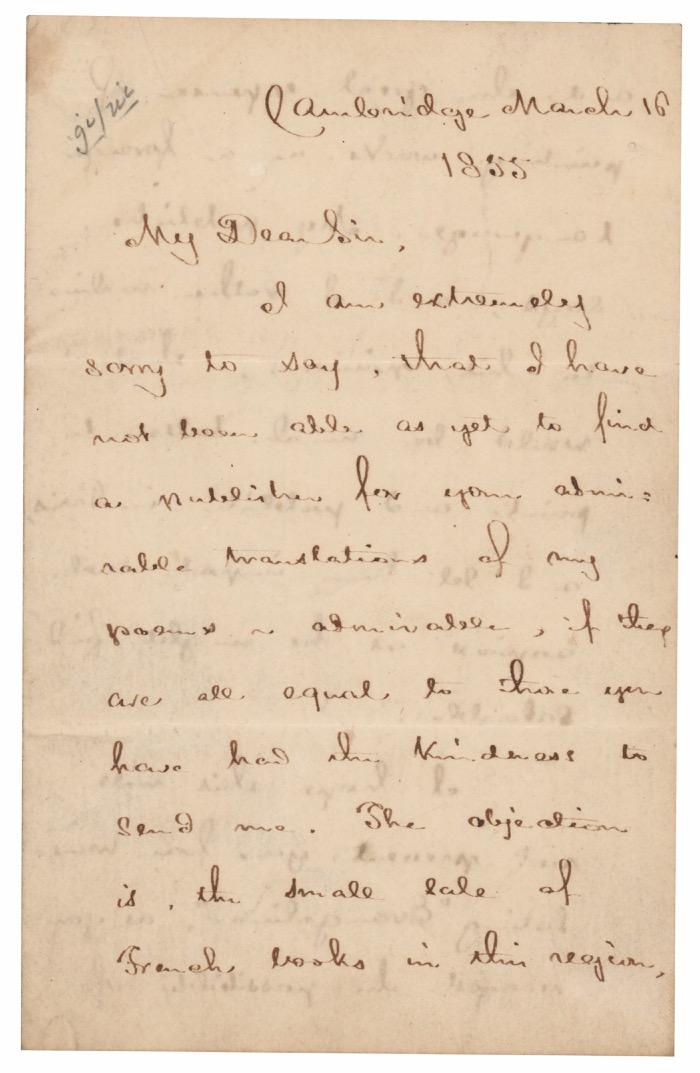 Cambridge March 16
1855
My Dear Sir,
I am extremely
sorry to say, that I have
not been able as yet to find
a publisher for your admi=
rable translations of my
poems ~ admirable, if they
are all equal to those you
have had the kindness to
send me. The objection
is, the small sale of
French books in this region,